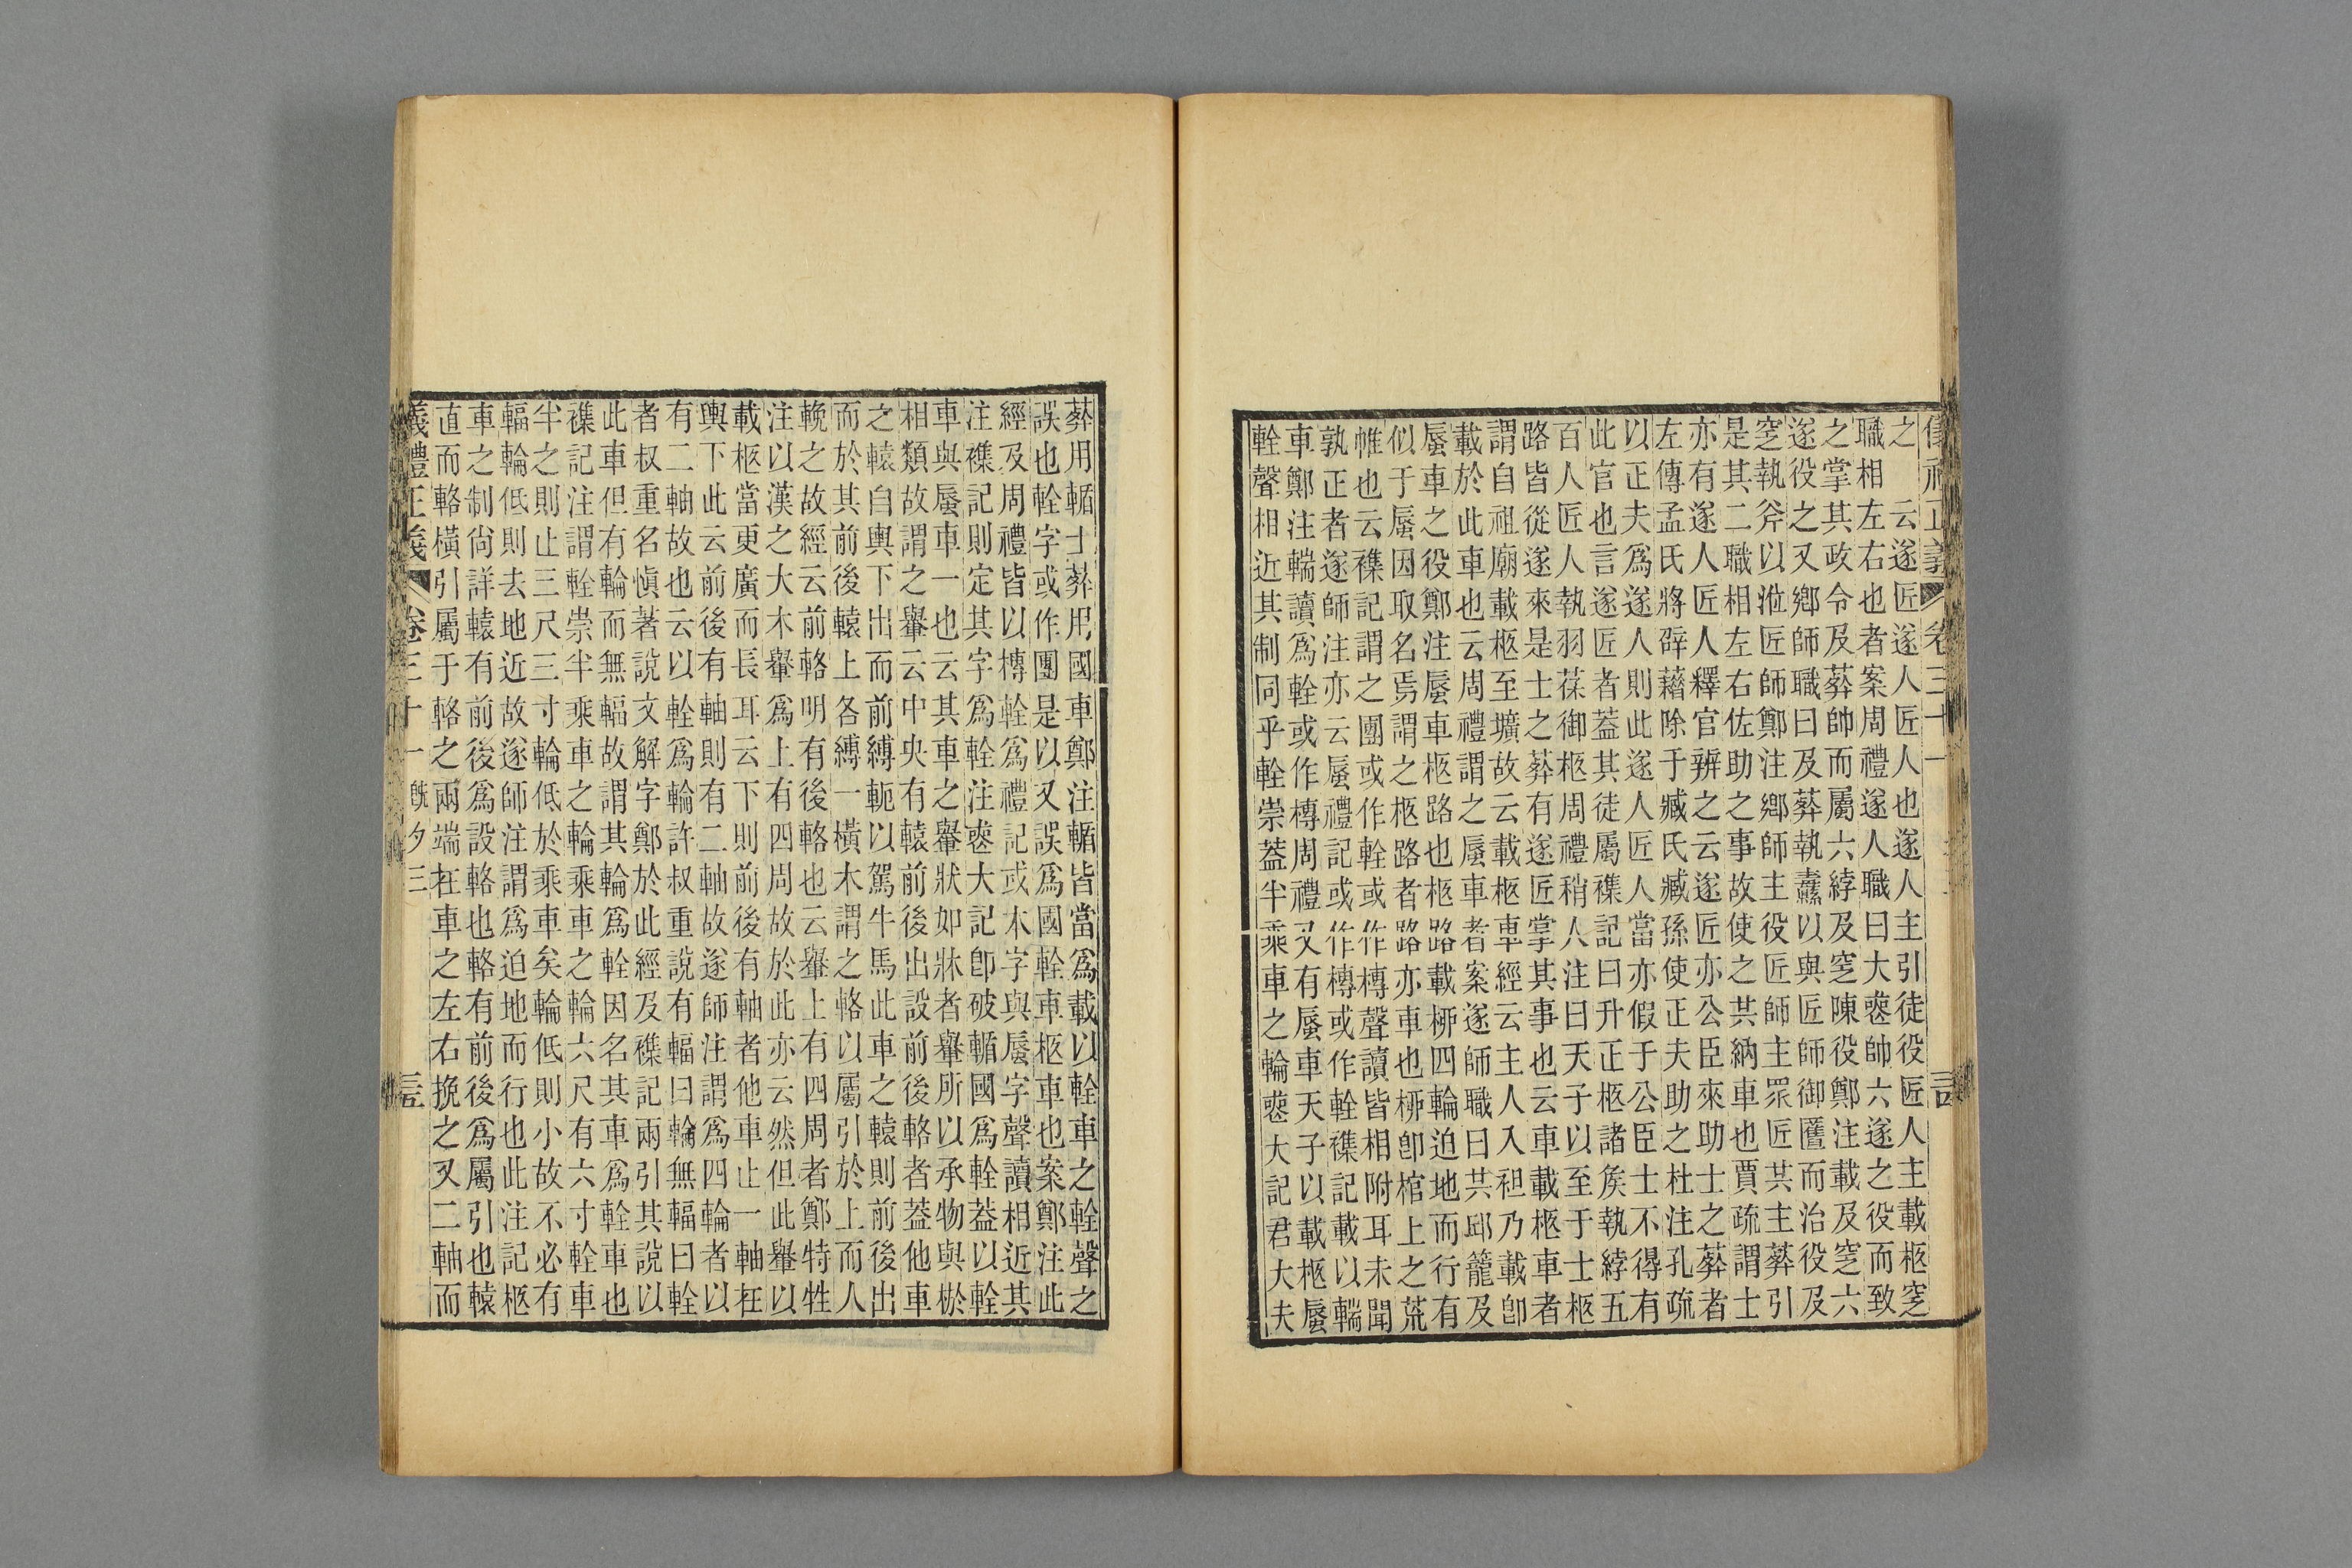 儀禮正義 卷三十一
之　云遂匠遂人匠人也遂人主引徒役匠人主載柩窆
職相左右也者案周禮遂人職曰大喪帥六遂之役而致
之掌其政令及葬帥而屬六綍及窆陳役鄭注載及窆六
遂役之又鄉師職曰及葬執纛以與匠師御匶而治役及
窆執斧以涖匠師鄭注鄉師主役匠師主眾匠共主葬引
是其二職相左右佐助之事故使之共納車也賈疏謂士
亦有遂人匠人釋官辨之云遂匠亦公臣來助士之葬者
左傳孟氏將辟藉除于臧氏臧孫使正夫助之杜注孔疏
以正夫爲遂人則此遂人匠人當亦假于公臣士不得有
此官也言遂匠者蓋其徒屬襍記曰升正柩諸矦執綍五
百人匠人執羽葆御柩周禮稍人注曰天子以至于士柩
路皆從遂來是士之葬有遂匠掌其事也云車載柩車者
謂自祖廟載柩至壙故云載柩車經云主人入袒乃載卽
載於此車也云周禮謂之蜃車者案遂師職曰共邱籠及
蜃車之役鄭注蜃車柩路也柩路載桺四輪迫地而行有
似于蜃因取名焉謂之柩路者路亦車也桺卽棺上之荒
帷也云襍記謂之團或作輇或作槫聲讀皆相附耳未聞
孰正者遂師注亦云蜃禮記或作槫或作輇襍記載以輲
車鄭注輲讀爲輇或作槫周禮又有蜃車天子以載柩蜃
輇聲相近其制同乎輇崇蓋半乘車之輪喪大記君大夫
葬用輴士葬用國車鄭注輴皆當爲載以輇車之輇聲之
誤也輇字或作團是以又誤爲國輇車柩車也案鄭注此
經及周禮皆以槫輇爲禮記或木字與蜃字聲讀相近其
注襍記則定其字爲輇注喪大記卽破輴國爲輇蓋以輇
車與蜃車一也云其車之轝狀如牀者轝所以承物與棜
相類故謂之轝云中央有轅前後出設前後輅者蓋他車
之轅自輿下出而前縛軛以駕牛馬此車之轅則前後出
而於其前後轅上各縛一橫木謂之輅以屬引於上而人
輓之故經云前輅明有後輅也云轝上有四周者鄭特牲
注以漢之大木轝爲上有四周故於此亦云然但此轝以
載柩當更廣而長耳云下則前後有軸者他車止一軸在
輿下此云前後有軸則有二軸故遂師注謂爲四輪者以
有二軸故也云以輇爲輪許叔重說有輻曰輪無輻曰輇
者叔重名愼著說文解字鄭於此經及襍記兩引其說以
此車但有輪而無輻故謂其輪爲輇因名其車爲輇車也
襍記注謂輇崇半乘車之輪乘車之輪六尺有六寸輇車
半之則止三尺三寸輪低於乘車矣輪低則小故不必有
輻輪低則去地近故遂師注謂爲迫地而行也此注記柩
車之制尙詳轅有前後爲設輅也輅有前後爲屬引也轅
直而輅橫引屬于輅之兩端在車之左右挽之又二軸而
儀禮正義 卷三十一 旣夕三